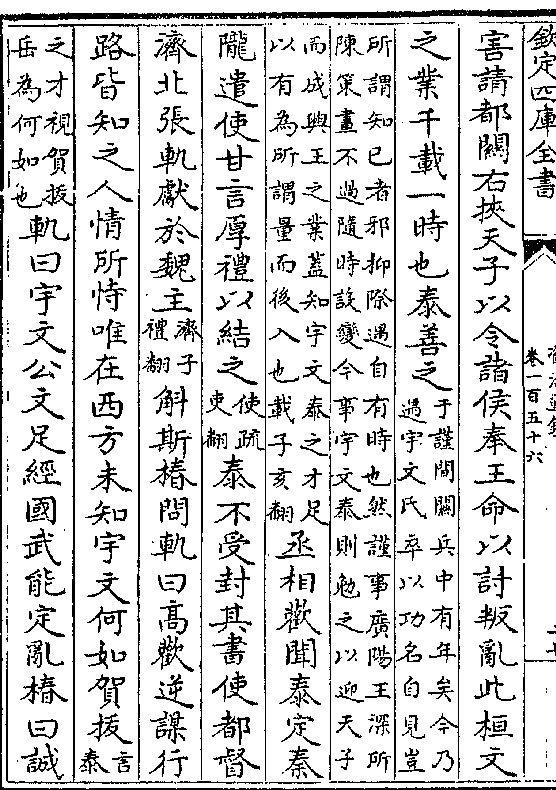 欽定四庫全書
卷一百五十六
害請都關右挾天子以令諸侯奉王命以討叛亂此桓文
之業千載一時也泰善之
于謹間關兵中有年矣今乃
遇宇文氏率以功名自見豈
所謂知已者邪抑際遇自有時也然謹事廣陽王深所
陳策畫不過隨時設變今事宇文泰則勉之以迎天子
而成興王之業蓋知宇文泰之才足
以有為所謂量而後入也載子亥翻
丞相歡聞泰定秦
隴遣使甘言厚禮以結之
使疏
吏翻
泰不受封其書使都督
濟北張軌獻於魏主
濟子
禮翻
斛斯椿問軌曰髙歡逆謀行
路皆知之人情所恃唯在西方未知宇文何如賀拔
言
泰
之才視賀拔
岳為何如也
軌曰宇文公文足經國武能定亂椿曰誠